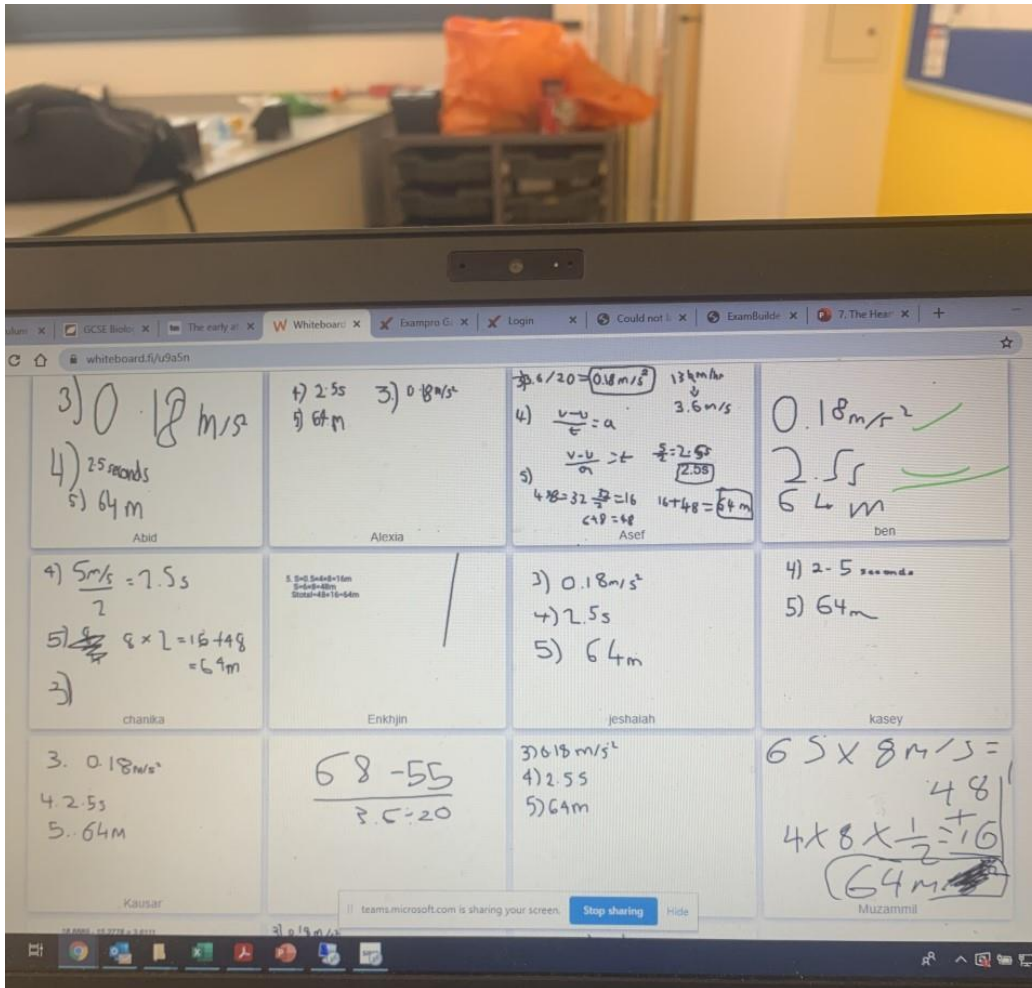 GCSE Biolo
The early a
Whiteboard
Exampro G
Login
Could not
ExamBuilde
7. The Hear
whiteboard.fi/u9a5n
3) 0.18 m/s²
4) 2.5 seconds
5) 64 m
Abid
4) 2.5s 3.) 0.18m/s²
5) 64 m
Alexia
3.6/20 = 0.18m/s² 13km/hr
3.6m/s
4) v-u/t = a
v-u/a = t 5/2 = 2.5s
2.5s
5)
4×8=32 32/2=16 16+48=64m
6×8=48
Asef
0.18m/s²
2.5s
64m
ben
4) 5m/s/2 = 2.5s
5) 8×2=16+48
=64m
3)
chanika
5. S=0.5×4×8=16m
S=6×8=48m
Stotal=48+16=64m
Enkhjin
3) 0.18m/s²
4) 2.5s
5) 64m
jeshaiah
4) 2-5 seconds
5) 64m
kasey
3. 0.18m/s²
4. 2.5s
5. 64m
Kausar
68-55
3.6÷20
3) 0.18 m/s²
4) 2.5s
5) 64m
6S × 8m/s =
48
+
4×8×1/2=16
64m
Muzammil
teams.microsoft.com is sharing your screen.
Stop sharing
Hide